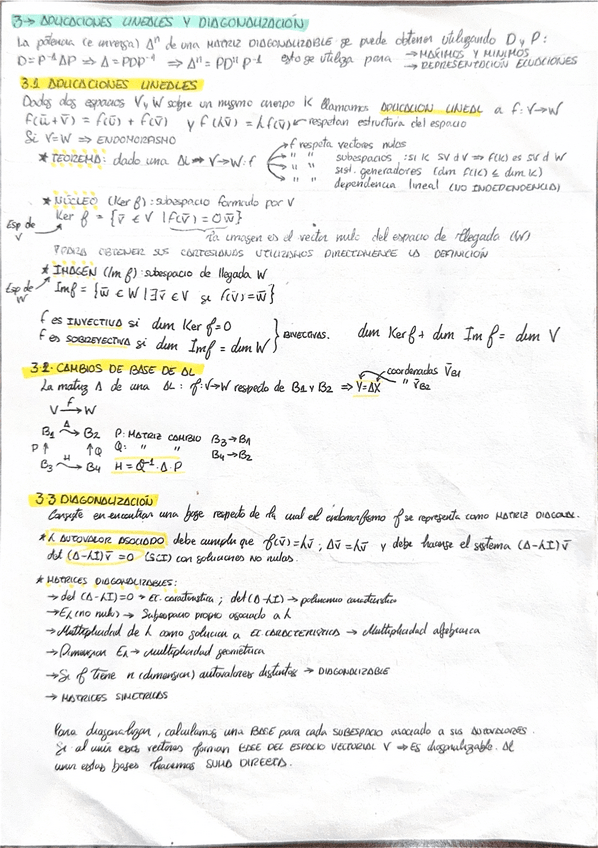 3→ APLICACIONES LINEALES Y DIAGONALIZACIÓN
La potencia (e inversa) Aⁿ de una MATRIZ DIAGONALIZABLE se puede obtener utilizando D y P:
D=P⁻¹AP ⇒ A=PDP⁻¹ ⇒ Aⁿ=PDⁿP⁻¹ esto se utiliza para → MÁXIMOS Y MÍNIMOS
→ REPRESENTACIÓN ECUACIONES
3.1 APLICACIONES LINEALES
Dados dos espacios V y W sobre un mismo cuerpo K llamamos APLICACIÓN LINEAL a f: V→W
f(ū+v̄) = f(ū) + f(v̄) y f(λv̄) = λf(v̄) respetan estructura del espacio
Si V=W ⇒ ENDOMORFISMO
→ f respeta vectores nulos
* TEOREMA: dado una AL ⇒ V→W: f → " " subespacios : si K SV d V ⇒ f(K) es SV d W
→ " " sist. generadores (dim f(K) ≤ dim K)
→ " " dependencia lineal (NO INDEPENDENCIA)
* NÚCLEO (Ker f): subespacio formado por V
Esp de V
Ker f = {v̄ ∈ V | f(v̄) = 0w̄}
la imagen es el vector nulo del espacio de llegada (W)
PARA OBTENER SUS CARTESIANAS UTILIZAMOS DIRECTAMENTE LA DEFINICIÓN
* IMAGEN (Im f): subespacio de llegada W
Esp de W
Im f = {w̄ ∈ W | ∃ v̄ ∈ V si f(v̄) = w̄}
f es INYECTIVA si dim Ker f = 0
f es SOBREYECTIVA si dim Im f = dim W } BIYECTIVAS. dim Ker f + dim Im f = dim V
3.2. CAMBIOS DE BASE DE AL
coordenadas v̄B1
La matriz A de una AL: f: V→W respecto de B1 y B2 ⇒ Y=AX " v̄B2
V →f W
B1 →A B2 P: MATRIZ CAMBIO B3→B1
P↑ ↑Q Q: " " B4→B2
B3 →H B4 H = Q⁻¹·A·P
3.3 DIAGONALIZACIÓN
Consiste en encontrar una base respecto de la cual el endomorfismo f se representa como MATRIZ DIAGONAL.
* λ AUTOVALOR ASOCIADO debe cumplir que f(v̄) = λv̄ ; Av̄ = λv̄ y debe hacerse el sistema (A-λI)v̄
det (A-λI)v̄ = 0 (SCI) con soluciones NO nulas.
* MATRICES DIAGONALIZABLES:
→ det (A-λI)=0 → EC. característica ; det (A-λI) → polinomio característico
→ Eλ (no nulo) → Subespacio propio asociado a λ
→ Multiplicidad de λ como solución a EC CARACTERÍSTICA → Multiplicidad algebraica
→ Dimensión Eλ → Multiplicidad geométrica
→ Si f tiene n (dimensión) autovalores distintos → DIAGONALIZABLE
→ MATRICES SIMÉTRICAS
Para diagonalizar, calculamos una BASE para cada SUBESPACIO asociado a sus AUTOVALORES.
Si al unir estos vectores forman BASE DEL ESPACIO VECTORIAL V ⇒ Es diagonalizable. Al
unir estas bases hacemos SUMA DIRECTA.